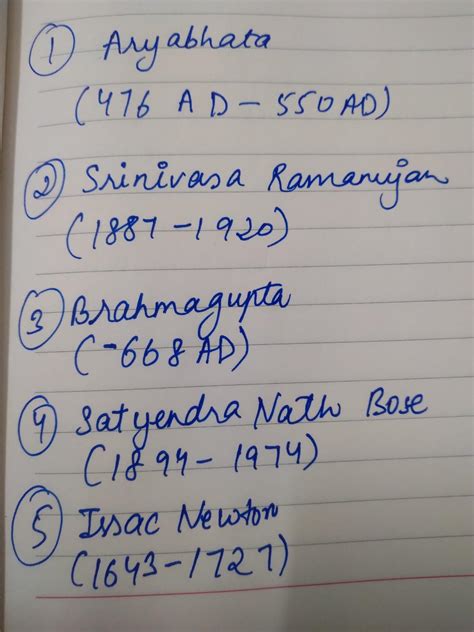 1 Aryabhata
(476 AD - 550AD)
2 Srinivasa Ramanujan
(1887 - 1920)
3 Brahmagupta
(-668 AD)
4 Satyendra Nath Bose
(1894 - 1974)
5 Issac Newton
(1643 - 1727)